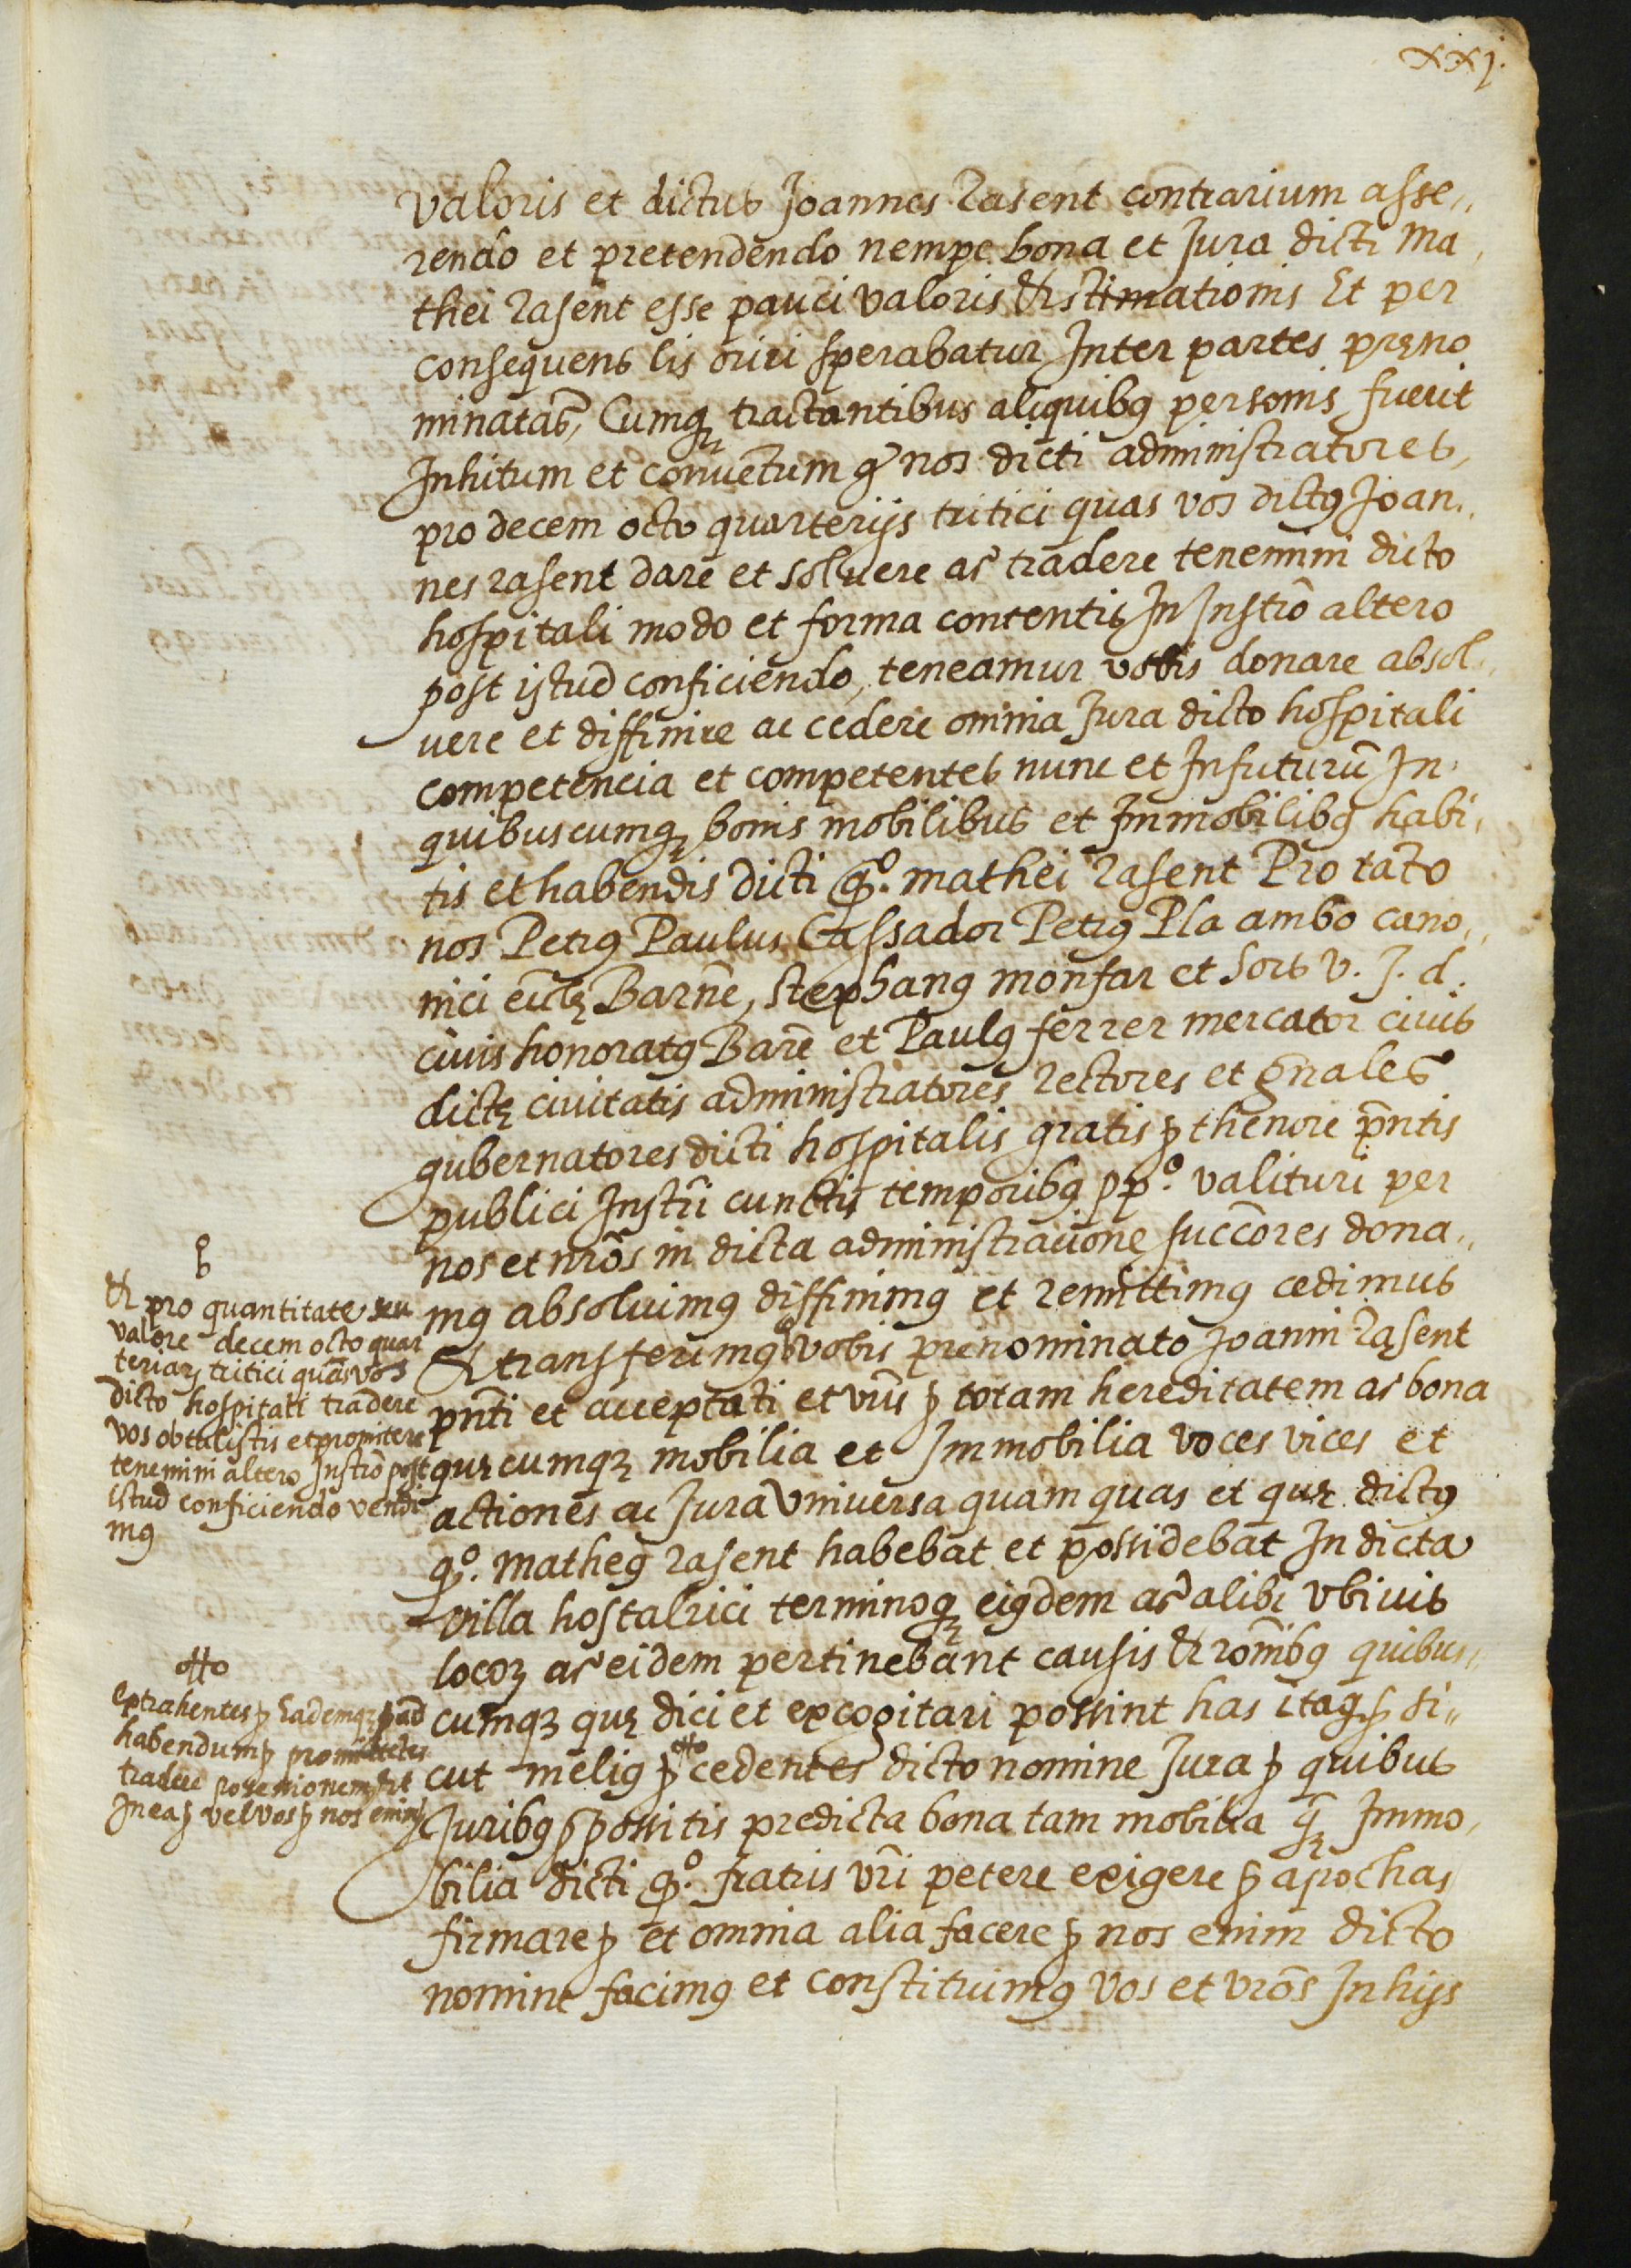 xxj.
valoris et dictus Joannes Rasent contrarium asse,,
rendo et pretendendo nempe bona et Jura dicti Ma,
thei Rasent esse pauci valoris & estimationis Et per
consequens lis oriri sperabatur Inter partes pręno
minatas, Cumq; tractantibus aliquibꝰ personis fuerit
Inhitum et conventum ꝙ nos dicti administratores,
pro decem octo quarterijs tritici quas vos dictꝰ Joan,,
nes rasent dare et solvere ac tradere tenemini dicto
hospitali modo et forma contentis In Instrō altero
post istud conficiendo, teneamur vobis donare absol,,
vere et diffinire ac cedere omnia Jura dicto hospitali
competencia et competentes nunc et Infuturū In,
quibuscumq; bonis mobilibus et Immobilibꝰ habi,
tis et habendis dicti qº. mathei Rasent Pro tāto
nos Petrꝰ Paulus Cassador Petrꝰ Pla ambo cano,,
nici ecclę Barnē, stephanꝰ monfar et Sors v. J. d.
civis honoratꝰ Barē et Paulꝰ ferrer mercator civis
dictę civitatis administratores Rectores et gñales
gubernatores dicti hospitalis gratis ꝑ thenore pñtis
publici Instrī cunctis temporibꝰ ppº. valituri per
nos et nrōs in dicta administratione succōres dona,,
mꝰ absolvimꝰ diffinimꝰ et remittimꝰ cedimus
& transferimꝰ vobis prenominato Joanni Rasent
pñti et acceptati et vrīs ꝑ totam hereditatem ac bona
quęcumqꝫ mobilia et Immobilia voces vices et
actiones ac Jura Vniversa quam quas et quę dictꝰ
qº. matheꝰ rasent habebat et possidebat In dicta
villa hostalrici terminoq; eiꝰdem ac alibi vbivis
locoꝝ ac eidem pertinebant causis & rōnibꝰ quibus,,
cumqꝫ quę dici et excogitari possint has itaq; ꝑ si,,
cut meliꝰ ꝑ cedentes dicto nomine Jura ꝑ quibus
Juribꝰ ꝑ possitis predicta bona tam mobilia q̄ Immo,
bilia dicti qº. fratris vrī petere exigere ꝑ apochas
firmare ꝑ et omnia alia facere ꝑ nos enim dicto
nomine facimꝰ et constituimꝰ vos et vrōs In hijs
& pro quantitate seu
valore decem octo quar
teriaꝝ tritici quas vos
dicto hospitali tradere
vos obtulistis et promitere
tenemini altero Instrō post
istud conficiendo vendi
mꝰ
extrahentes ꝑ Eademqꝫ ad
habendum ꝑ promittētes
tradere possessionem
In ea ꝑ vel vos ꝑ nos enim ꝑ